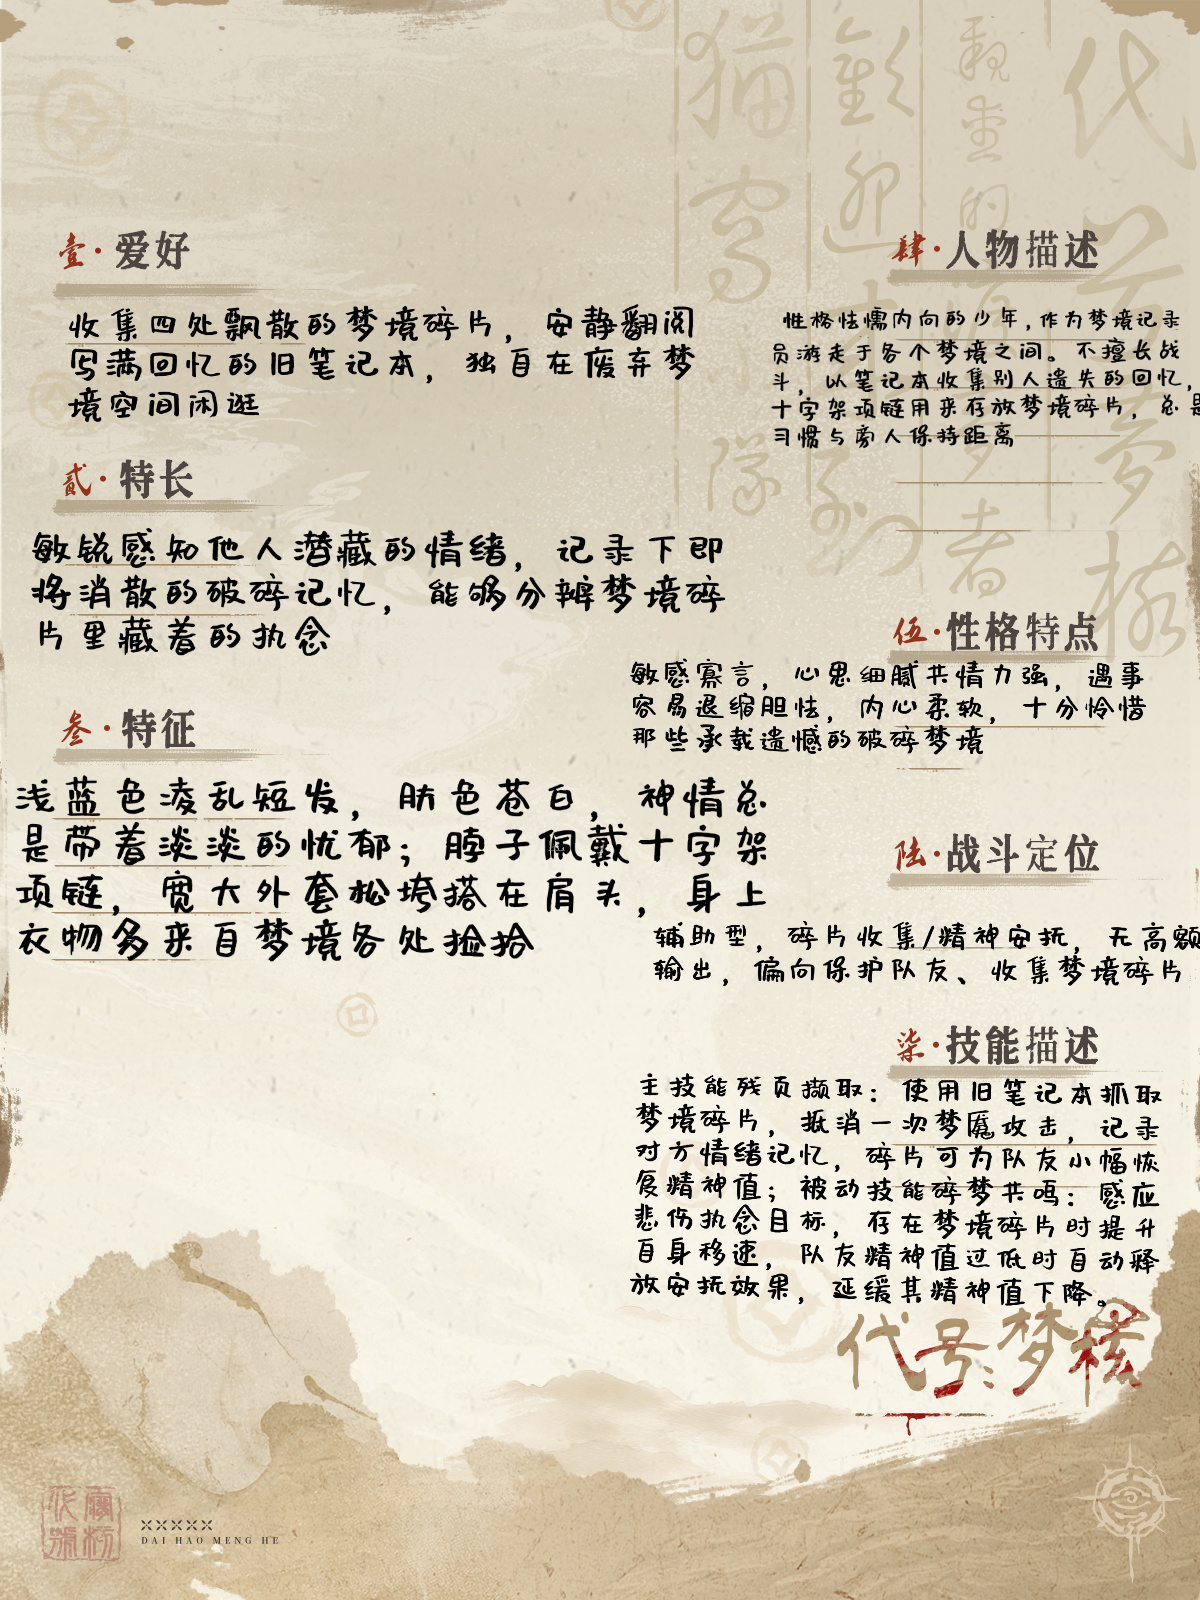 壹·爱好
收集四处飘散的梦境碎片，安静翻阅
写满回忆的旧笔记本，独自在废弃梦
境空间闲逛
贰·特长
敏锐感知他人潜藏的情绪，记录下即
将消散的破碎记忆，能够分辨梦境碎
片里藏着的执念
叁·特征
浅蓝色凌乱短发，肤色苍白，神情总
是带着淡淡的忧郁；脖子佩戴十字架
项链，宽大外套松垮搭在肩头，身上
衣物多来自梦境各处捡拾
肆·人物描述
性格怯懦内向的少年，作为梦境记录
员游走于各个梦境之间。不擅长战
斗，以笔记本收集别人遗失的回忆，
十字架项链用来存放梦境碎片，总是
习惯与旁人保持距离
伍·性格特点
敏感寡言，心思细腻共情力强，遇事
容易退缩胆怯，内心柔软，十分怜惜
那些承载遗憾的破碎梦境
陆·战斗定位
辅助型，碎片收集/精神安抚，无高额
输出，偏向保护队友、收集梦境碎片
柒·技能描述
主技能残页撷取：使用旧笔记本抓取
梦境碎片，抵消一次梦魇攻击，记录
对方情绪记忆，碎片可为队友小幅恢
复精神值；被动技能碎梦共鸣：感应
悲伤执念目标，存在梦境碎片时提升
自身移速，队友精神值过低时自动释
放安抚效果，延缓其精神值下降。
代号：梦核
代
猫
欢迎
观
的
者
队
核
DAI HAO MENG HE